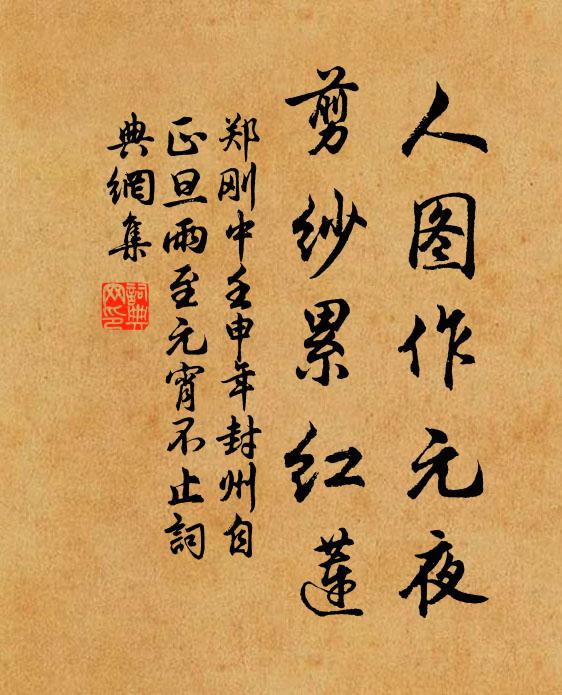 人图作元夜
剪纱累红莲
郑刚中壬申年封州自
正旦雨至元宵不止詞
典網集
詞典網印